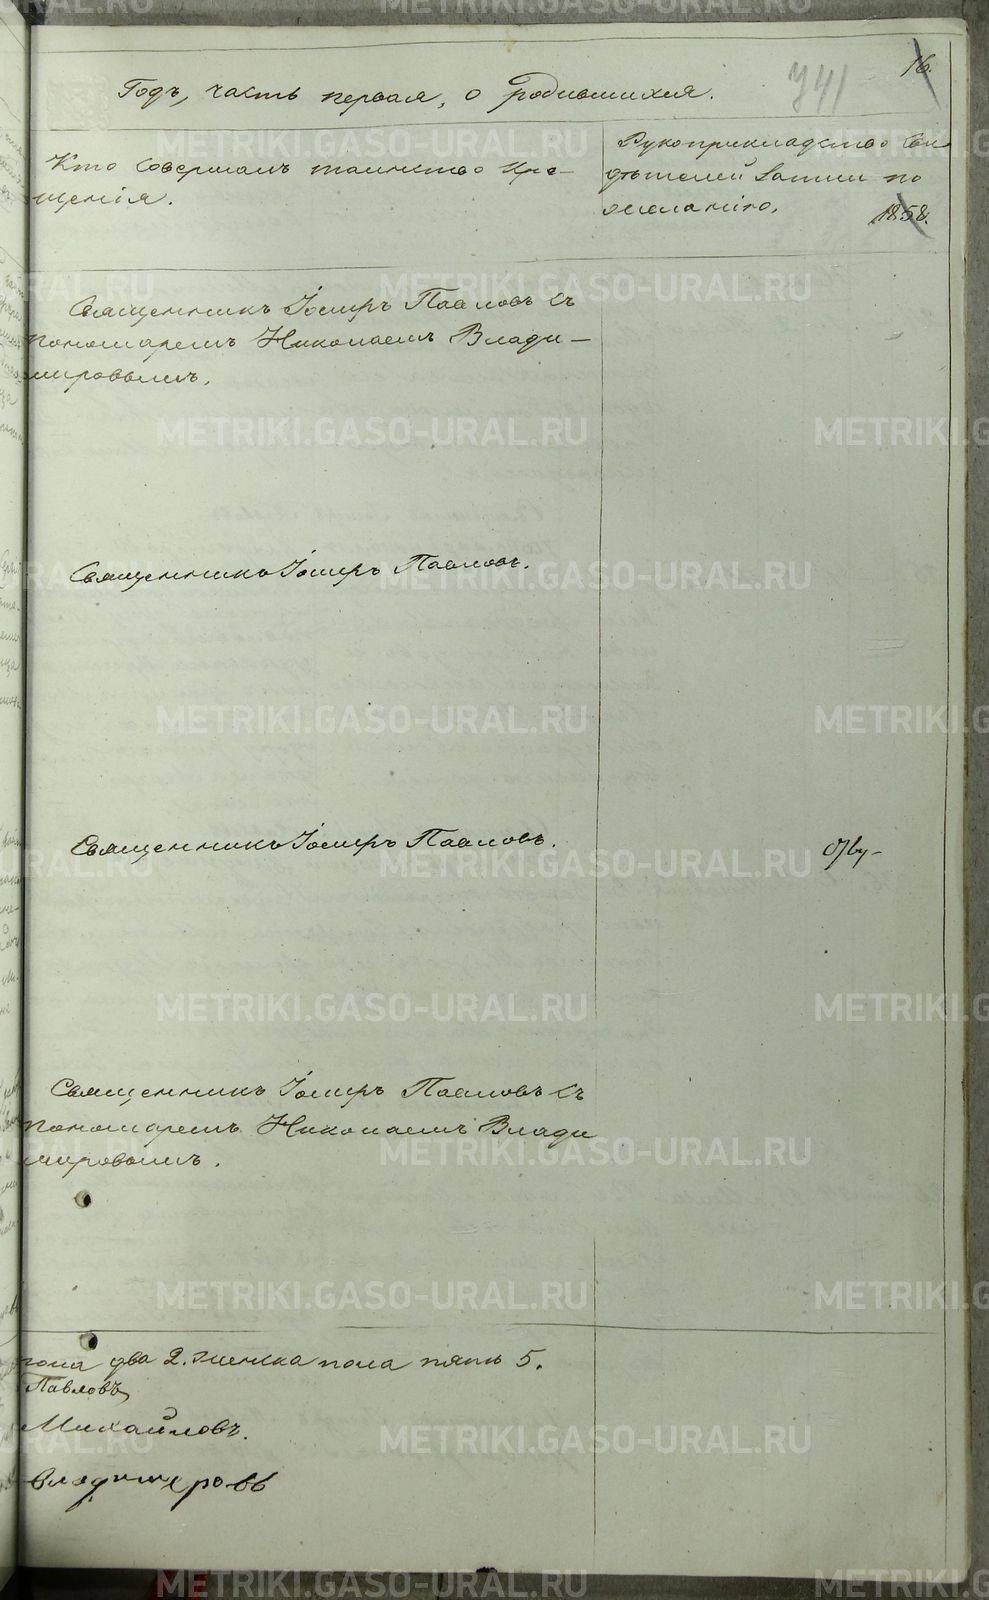 16.
741
Годъ, часть первая, о родившихся.
Кто совершалъ таинство кре-
щенія.
Рукоприкладство сви
дѣтелей записи по
желанію.
1858.
Священникъ Іосифъ Павловъ съ
пономаремъ Николаемъ Влади-
мировымъ.
Священникъ Іосифъ Павловъ.
Священникъ Іосифъ Павловъ.
Священникъ Іосифъ Павловъ съ
пономаремъ Николаемъ Влади
мировымъ.
пола два 2. женска пола пять 5.
Павловъ
Михайловъ.
Владимеровъ
METRIKI.GASO-URAL.RU